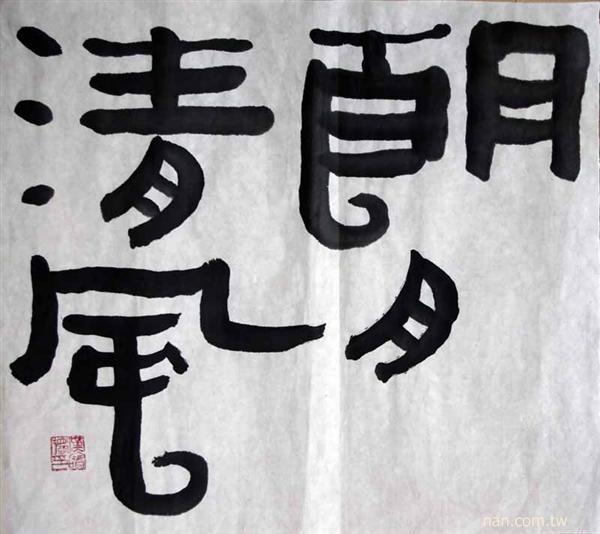 朗月
清風
nan.com.tw